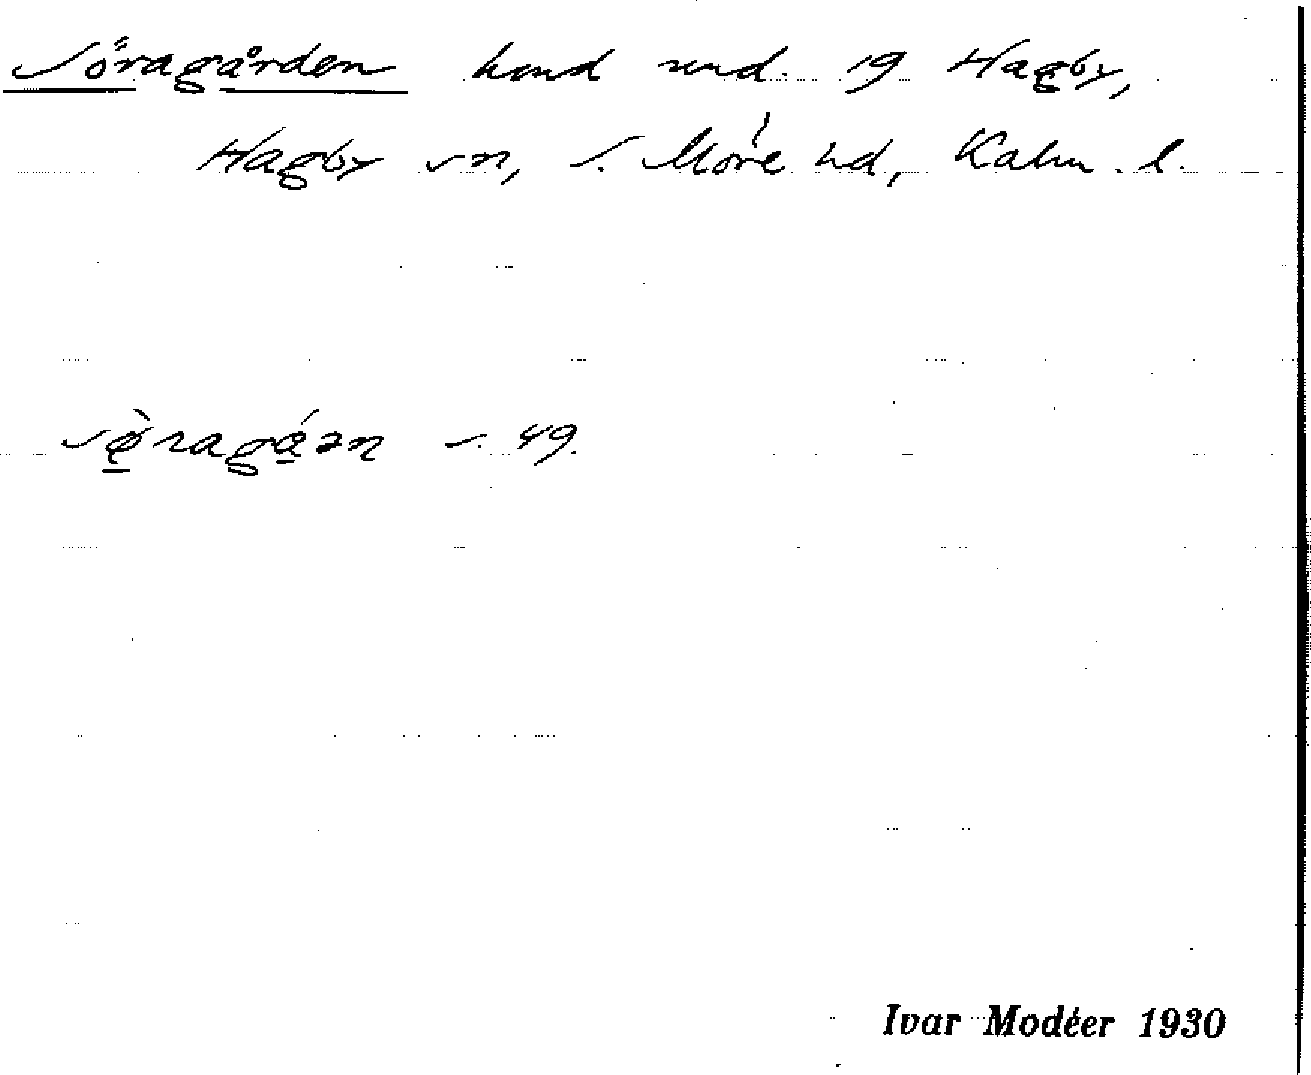 Söragården hmd und. 19 Hagby,
Hagby sn, S. Möre hd, Kalm. l.
sø̀ragǻən s. 49.
Ivar Modéer 1930